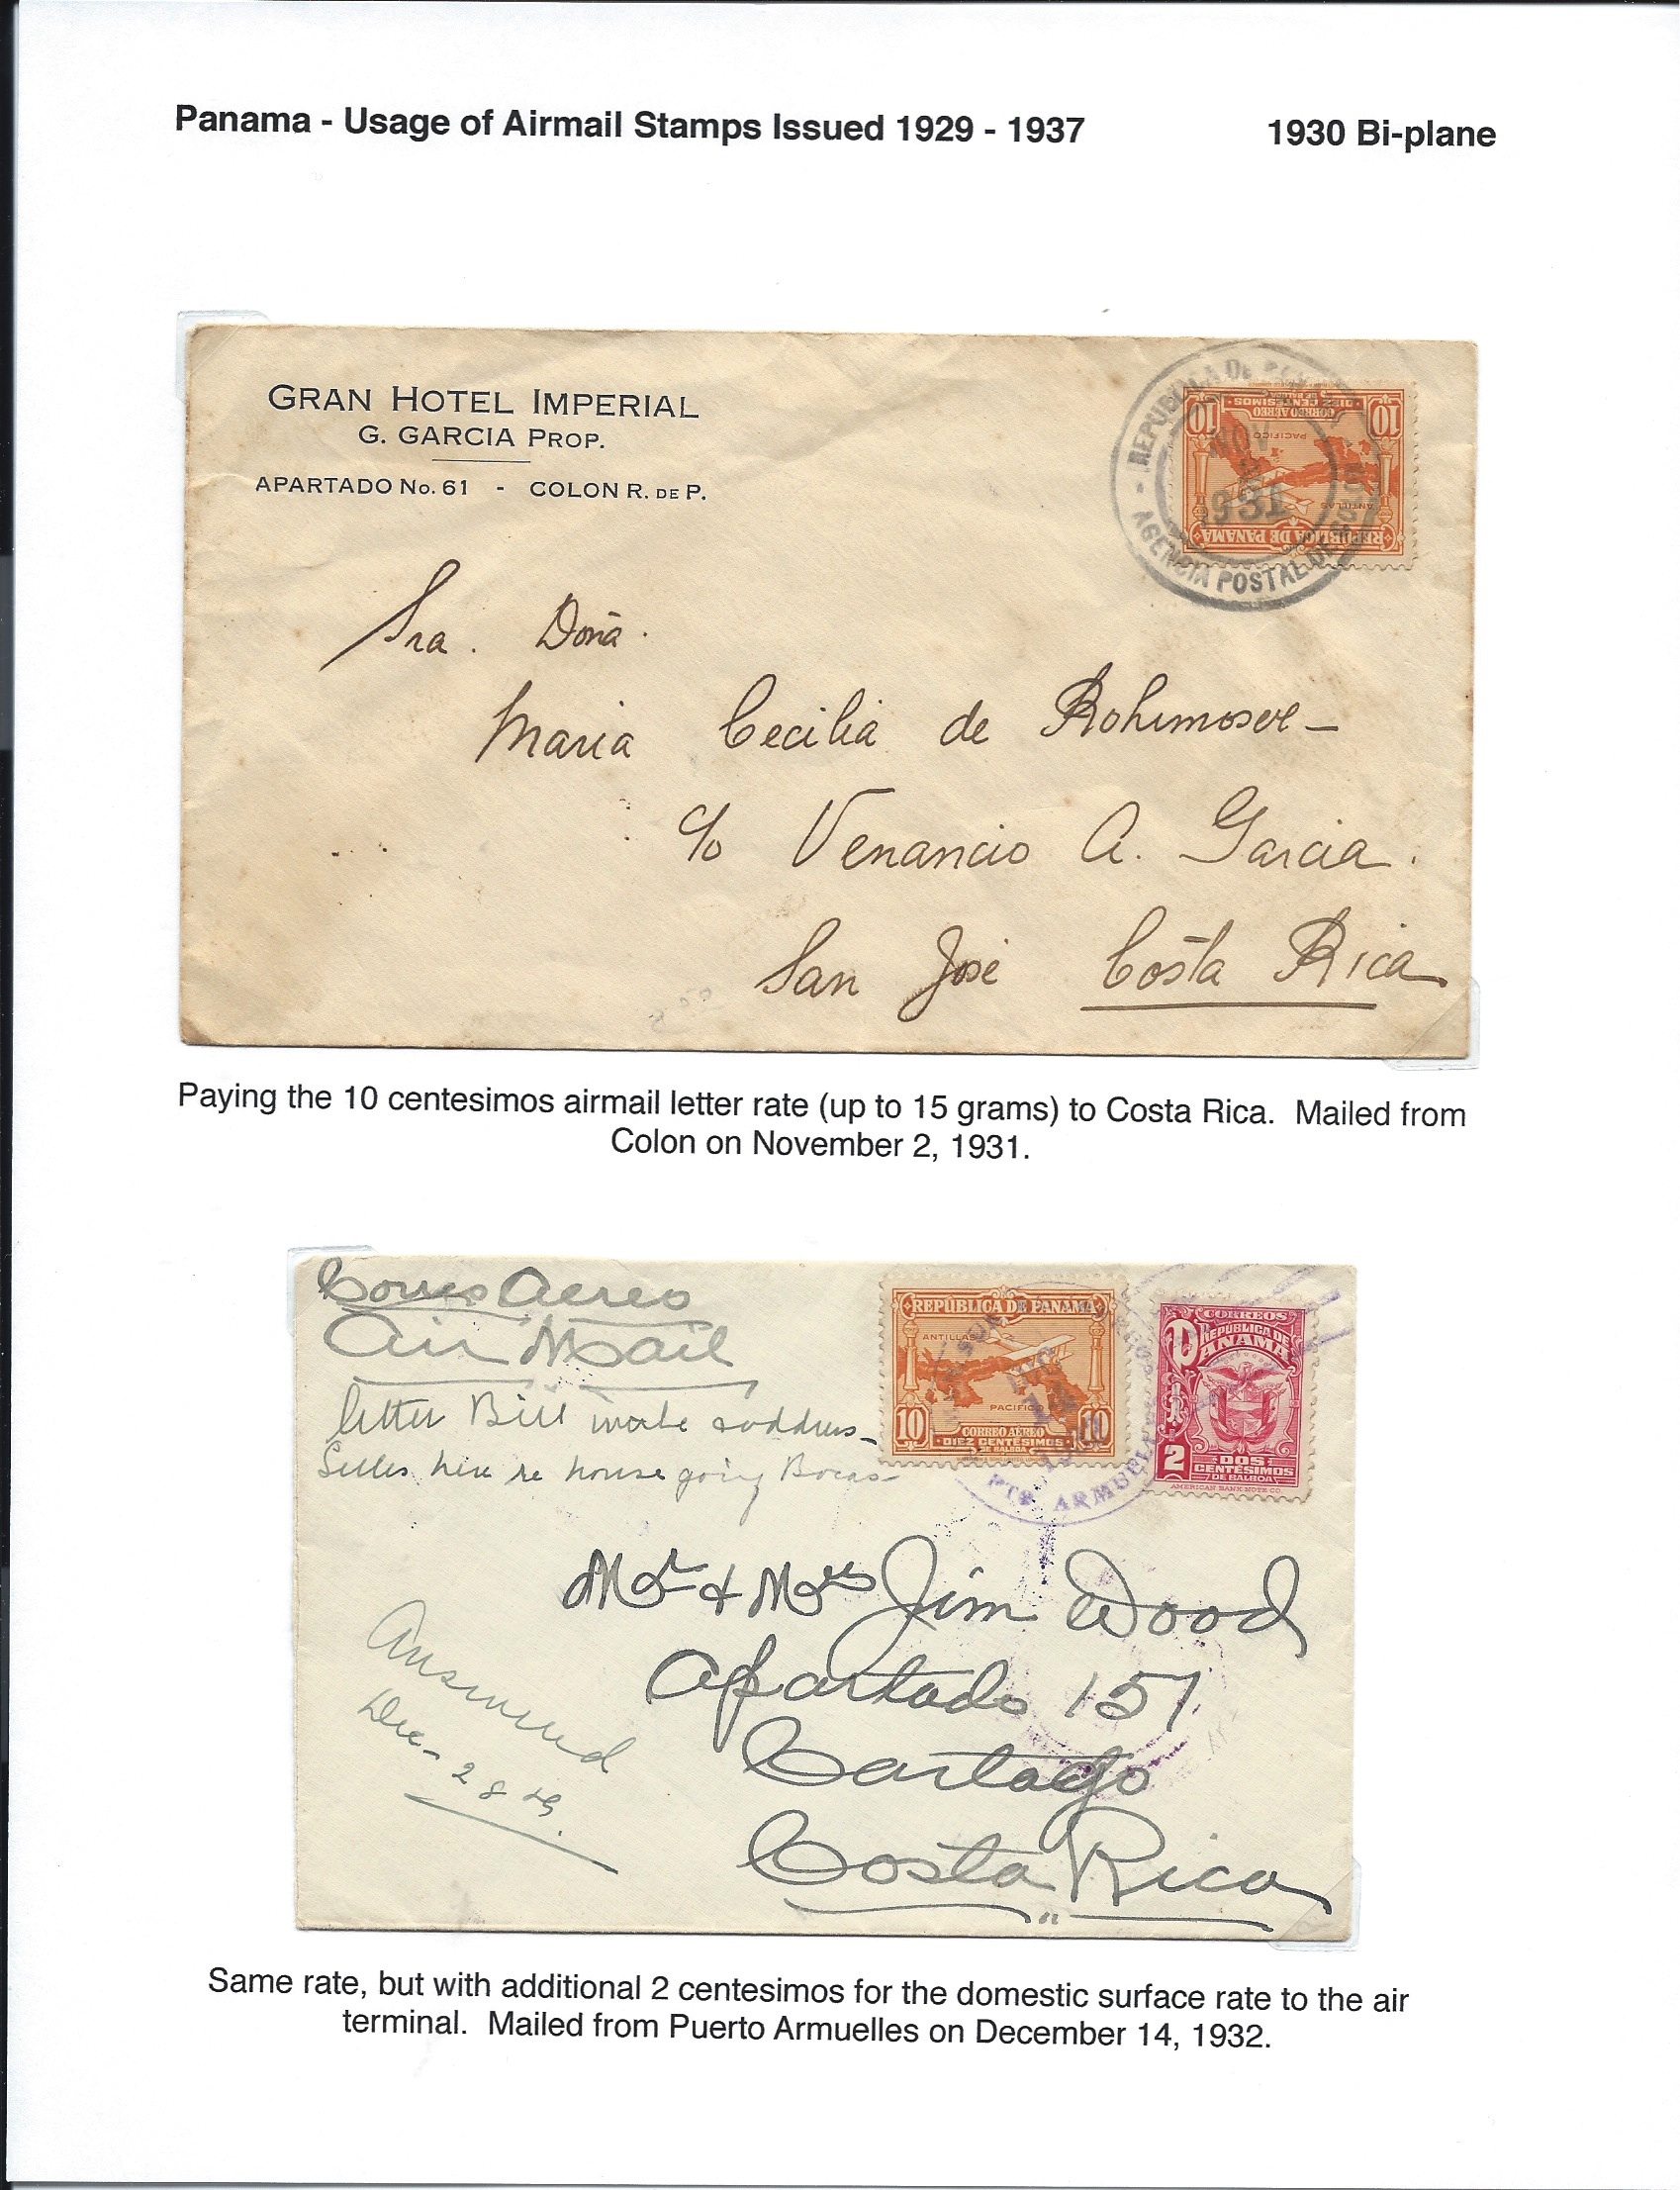 Panama - Usage of Airmail Stamps Issued 1929 - 1937
1930 Bi-plane
GRAN HOTEL IMPERIAL
G. GARCIA PROP.
APARTADO No. 61 - COLON R. DE P.
REPUBLICA DE
NOV
2
1931
AGENCIA POSTAL DE COLON
REPÚBLICA DE PANAMA
ANTILLAS
PACIFICO
10 10
CORREO AÉREO
DIEZ CENTÉSIMOS
DE BALBOA
Sra. Doña.
Maria Cecilia de Rohrmoser -
c/o Venancio A. Garcia.
San José Costa Rica
Paying the 10 centesimos airmail letter rate (up to 15 grams) to Costa Rica. Mailed from
Colon on November 2, 1931.
Correo Aereo
Air Mail
letter Bill address -
here re house going Bocas -
REPÚBLICA DE PANAMA
ANTILLAS
PACIFICO
10 10
CORREO AÉREO
DIEZ CENTÉSIMOS
DE BALBOA
PTO ARMUELLES
CORREOS
REPÚBLICA DE
PANAMA
2
DOS
CENTÉSIMOS
DE BALBOA
AMERICAN BANK NOTE CO.
Mr & Mrs Jim Wood
Apartado 157
Cartago
Costa Rica
Answered
Dec - 28 th.
Same rate, but with additional 2 centesimos for the domestic surface rate to the air
terminal. Mailed from Puerto Armuelles on December 14, 1932.